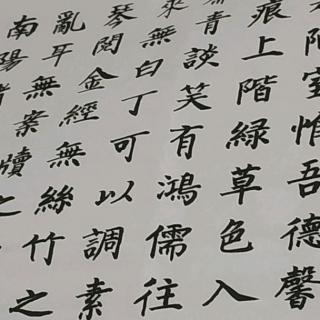 陋室惟吾德馨
痕上階綠草色入
青談笑有鴻儒往
來無白丁可以調素
琴閱金經無絲竹之
亂耳無案牘之
南陽